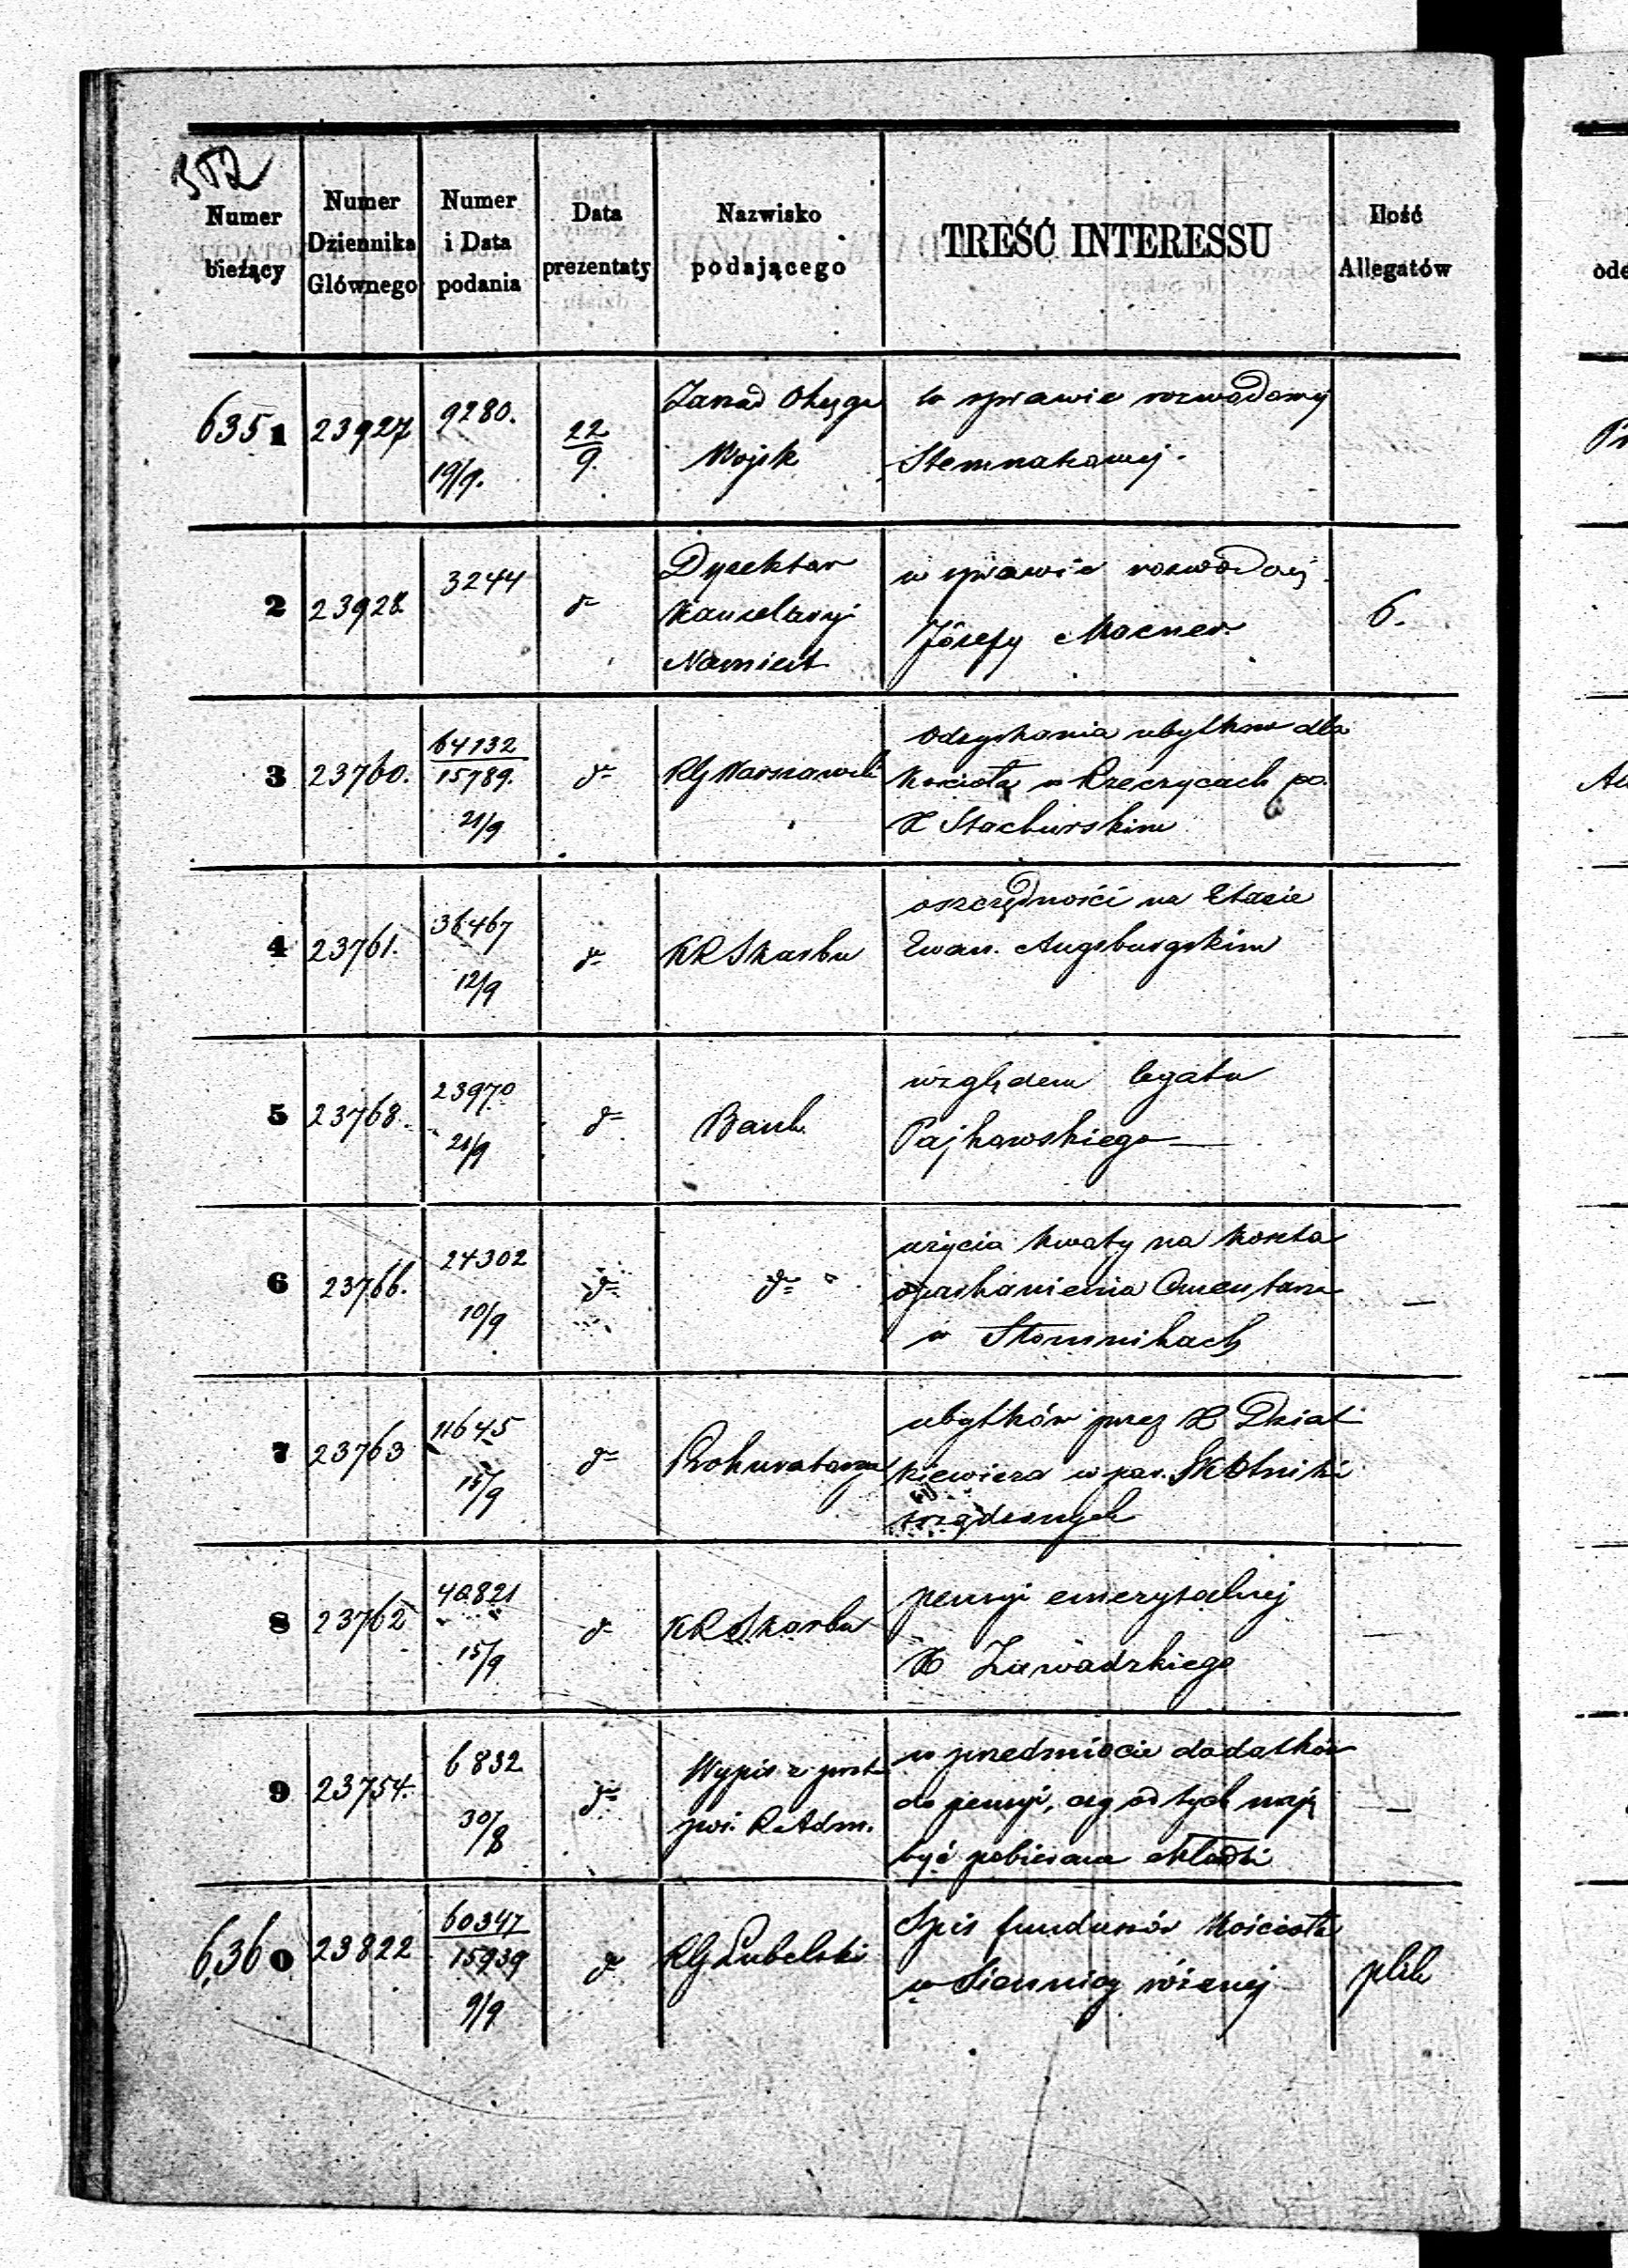 352
Numer bieżący
Numer Dziennika Głównego
Numer i Data podania
Data prezentaty
Nazwisko podającego
TREŚĆ INTERESSU
Ilość Allegatów
6351 23927 9280. 19/9. 22/9. Zarząd Okręgu w sprawie rozwodowej
Wojsk Stemnakowej.
2 23928 3244 d° Dyrektor w sprawie rozwodowej
Kancelaryi Józefy Mocner 6.
Namiest
3 23760. 64132/15789. 21/9 d° RG Warszawski odzyskania ubytków dla
Kościoła w Rzeczycach po
X Stachurskim
4 23761. 36467 12/9 d° KR Skarbu oszczędności na Etacie
Ewan. Augsburgskim
5 23768. 23970 21/9 d° Bank względem legatu
Pajkowskiego
6 23766. 24302 10/9 d° d° użycia kwoty na koszta
oparkanienia Cmentarza —
w Słomnikach
7 23763 11645 15/9 d° Prokuratorya ubytków przez X Dział
kiewicza w par. Skotniki
zrządzonych
8 23762 40821 15/9 d° KR Skarbu pensyi emerytalnej
X Zawadzkiego
9 23754. 6832 30/8 d° Wypis z prot w przedmiocie dodatków
pos. R Adm. do pensyi, czy od tych mają —
być pobierane składki
6360 23822 60347/15939 9/9 d° RG Lubelski Spis funduszów Kościoła
w Siennicy różanej plik